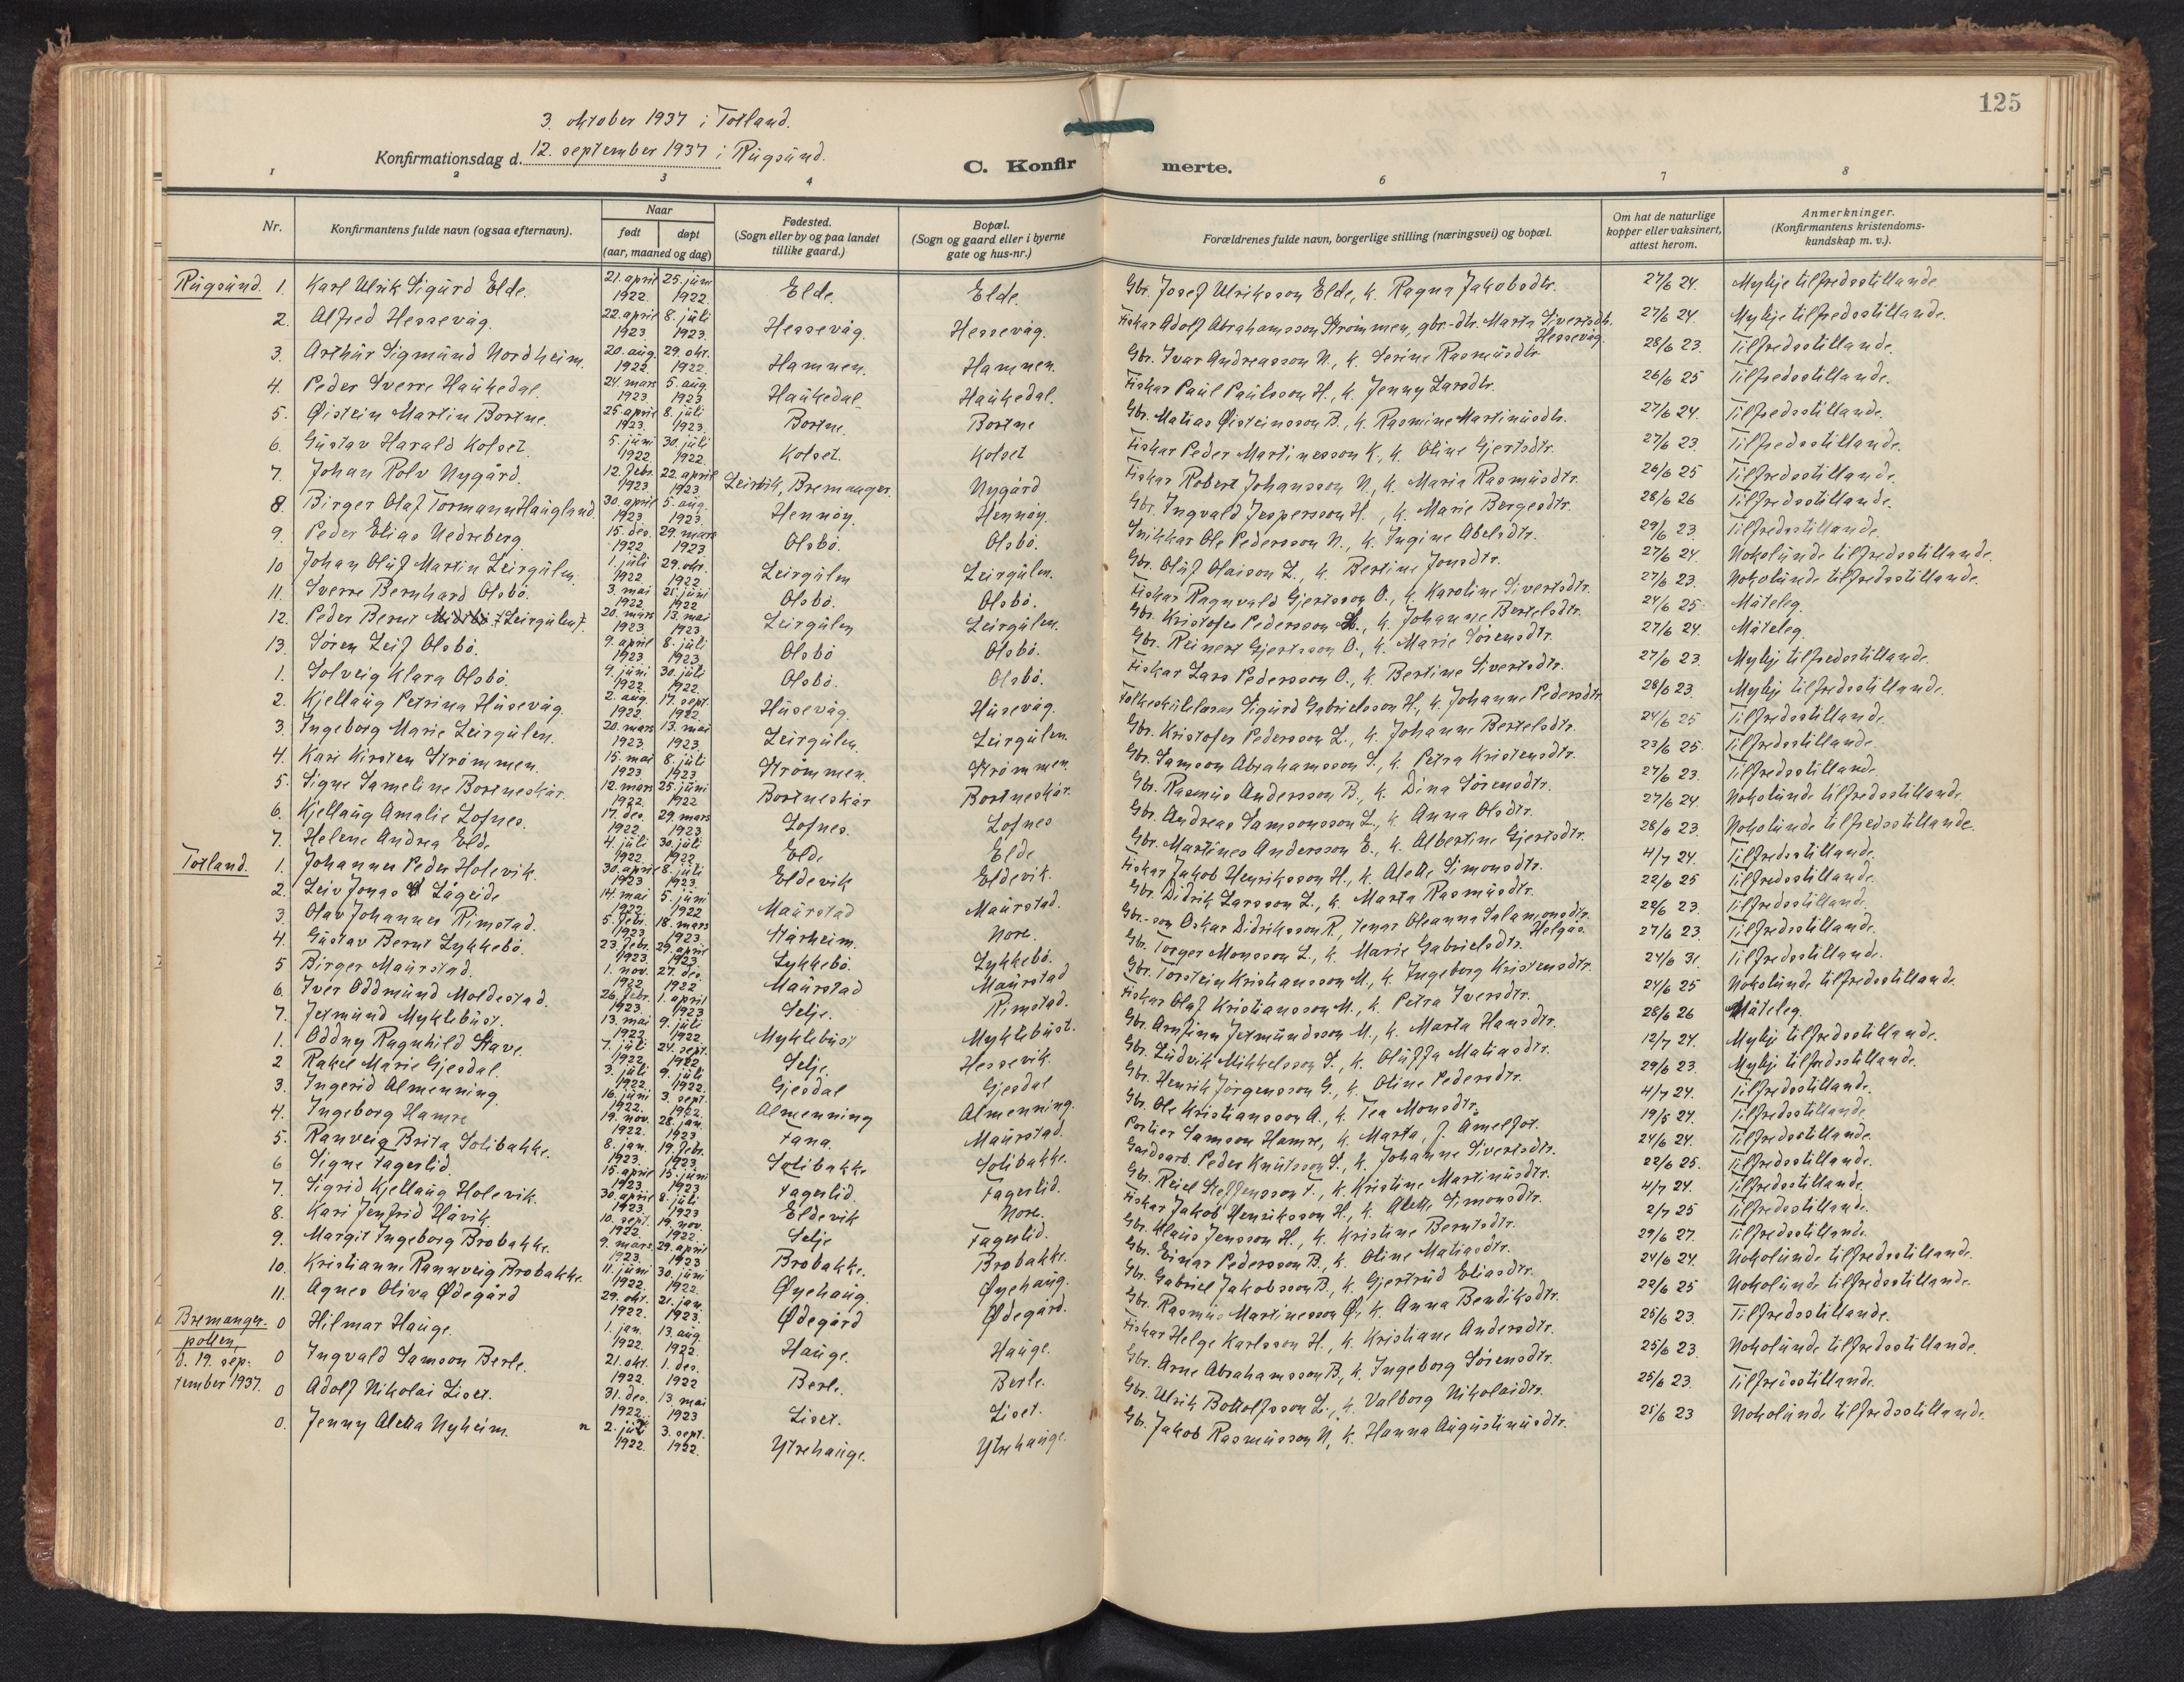 125
3. oktober 1937 i Totland.
Konfirmationsdag d. 12. september 1937 i Rugsund.
C. Konfirmerte.
1 2 3 4 6 7 8
Nr. | Konfirmantens fulde navn (ogsaa efternavn). | Naar født døpt (aar, maaned og dag) | Fødested. (Sogn eller by og paa landet tillike gaard.) | Bopæl. (Sogn og gaard eller i byerne gate og hus-nr.) | Forældrenes fulde navn, borgerlige stilling (næringsvei) og bopæl. | Om hat de naturlige kopper eller vaksinert, attest herom. | Anmerkninger. (Konfirmantens kristendoms-kundskap m. v.).
Rugsund. 1. Karl Ulrik Sigurd Elde. 21. april 1922. 25. juni 1922. Elde. Elde. Gbr. Josef Ulriksson Elde, k. Ragna Jakobsdtr. 27/6 24. Mykje tilfredsstillande.
2. Alfred Hessevåg. 22. april 1923. 8. juli 1923. Hessevåg. Hessevåg. Fiskar Adolf Abrahamsson Strømmen, gbr.-dtr. Marta Sivertsdtr. Hessevåg. 27/6 24. Mykje tilfredsstillande.
3. Arthur Sigmund Nordheim. 20. aug. 1922. 29. okt. 1922. Hamnen. Hamnen. Gbr. Ivar Andreasson N., k. Serine Rasmusdtr. 28/6 23. Tilfredsstillande.
4. Peder Sverre Haukedal. 24. mars 1923. 5. aug. 1923 Haukedal Haukedal. Fiskar Paul Paulsson H., k. Jenny Larsdtr. 26/6 25 Tilfredsstillande.
5. Øistein Martin Bortne. 25. april 1923. 8. juli 1923. Bortne. Bortne Gbr. Matias Øisteinsson B., k. Rasmine Martinusdtr. 27/6 24. Tilfredsstillande.
6. Gustav Harald Kolset. 5. juni 1922. 30. juli 1922. Kolset. Kolset Fiskar Peder Martinesson K., k. Oline Gjertsdtr. 27/6 23. Tilfredsstillande.
7. Johan Rolv Nygård. 12. febr. 1923 22. april 1923. Leirvik, Bremanger. Nygård Fiskar Robert Johansson N., k. Maria Rasmusdtr. 26/6 25 Tilfredsstillande.
8. Birger Olaf Tormann Haugland. 30. april 1923 5. aug. 1923. Hennøy. Hennøy. Gbr. Ingvald Jespersson H., k. Marie Borgesdtr. 28/6 26 Tilfredsstillande.
9. Peder Elias Nedreberg 15. des. 1922. 29. mars 1923 Olsbø. Olsbø. Snikkar Ole Pedersson N., k. Ingine Abelsdtr. 29/6 23. Tilfredsstillande.
10 Johan Oluf Martin Leirgulen. 1. juli 1922 29. okt. 1922. Leirgulen Leirgulen. Gbr. Oluf Olaison L., k. Bertine Jonsdtr. 27/6 24. Nokolunde tilfredsstillande.
11. Sverre Bernhard Olsbø. 3. mai 1922. 25. juni 1922 Olsbø. Olsbø. Fiskar Ragnvald Gjertsson O., k. Karoline Sivertsdtr. 27/6 23. Nokolunde tilfredsstillande.
12. Peder Bernt (Leirgulen). 20. mars 1923. 13. mai 1923 Leirgulen Leirgulen. Gbr. Kristofer Pedersson L., k. Johanne Bertelsdtr. 24/6 25. Måteleg.
13. Søren Leif Olsbø. 9. april 1923 8. juli 1923. Olsbø Olsbø. Gbr. Reinert Gjertsson O., k. Marie Sørensdtr. 27/6 24. Måteleg.
1. Solveig Klara Olsbø. 9. juni 1922. 30. juli 1922. Olsbø. Olsbø. Fiskar Lars Pedersson O., k. Bertine Sivertsdtr. 27/6 23. Mykje tilfredsstillande.
2. Kjellaug Petrina Husevåg. 2. aug. 1922. 17. sept. 1922. Husevåg. Husevåg. Folkeskulelærar Sigurd Gabrielsson H., k. Johanne Pedersdtr. 28/6 23. Mykje tilfredsstillande.
3. Ingeborg Marie Leirgulen. 20. mars 1923. 13. mai 1923. Leirgulen. Leirgulen. Gbr. Kristofer Pedersson L., k. Johanne Bertelsdtr. 24/6 25 Tilfredsstillande.
4. Kari Kirsten Strømmen. 15. mai 1923 8. juli 1923 Strømmen. Strømmen. Gbr. Samson Abrahamsson S., k. Petra Kristensdtr. 23/6 25. Tilfredsstillande.
5. Signe Sameline Bortneskår. 12. mars 1922. 25. juni 1922 Bortneskår Bortneskår. Gbr. Rasmus Andersson B., k. Dina Sørensdtr. 27/6 23. Tilfredsstillande.
6. Kjellaug Amalie Lofnes. 17. des. 1922. 29. mars 1923. Lofnes. Lofnes Gbr. Andreas Samsonsson L., k. Anna Olsdtr. 27/6 24. Nokolunde tilfredsstillande.
7. Helene Andrea Elde 4. juli 1922 30. juli 1922 Elde Elde Gbr. Martines Andersson E., k. Albertine Gjertsdtr. 28/6 23. Nokolunde tilfredsstillande.
Totland. 1. Johannes Peder Holevik. 30. april 1923 8. juli 1923. Eldevik Eldevik. Fiskar Jakob Henriksson H., k. Alette Simonsdtr. 4/7 24. Tilfredsstillande.
2. Leiv Jonas Lågeide 14. mai 1922. 5. juni 1922 Maurstad Maurstad. Gbr. Didrik Larsson L., k. Marta Rasmusdtr. 22/6 25 Tilfredsstillande.
3. Olav Johannes Rimstad. 5. febr. 1923. 18. mars 1923. Stårheim. Nore. Gbr.-son Oskar Didriksson R, tenar Oleanna Salamonsdtr. Helgås. 29/6 23. Tilfredsstillande.
4. Gustav Bernt Lykkebø. 23. febr. 1923. 29. april 1923 Lykkebø. Lykkebø. Gbr. Torger Monsson L., k. Marie Gabrielsdtr. 27/6 23. Tilfredsstillande.
5 Birger Maurstad. 1. nov. 1922 27. des. 1922 Maurstad Maurstad Gbr. Torstein Kristiansson M., k. Ingeborg Kristensdtr. 24/6 31. Tilfredsstillande.
6. Iver Oddmund Moldestad. 26. febr. 1923. 1. april 1923 Selje. Rimstad. Fiskar Olaf Kristiansson M., k. Petra Iversdtr. 24/6 25 Nokolunde tilfredsstillande.
7. Jetmund Myklebust. 13. mai 1922 9. juli 1922 Myklebust Myklebust. Gbr. Arnfinn Jetmundsson M., k. Marta Hansdtr. 28/6 26 Måteleg.
1. Oddny Ragnhild Stave. 7. juli 1922. 24. sept. 1922 Selje. Hessevik. Gbr. Ludvik Mikkelsson S., k. Oluffa Matiasdtr. 12/7 24. Mykje tilfredsstillande.
2 Rakel Marie Gjesdal. 3. juli 1922. 9. juli 1922. Gjesdal Gjesdal Gbr. Henrik Jørgensson G., k. Oline Pedersdtr. 29/6 23. Mykje tilfredsstillande.
3. Ingerid Almenning. 16. juni 1922. 3. sept. 1922. Almenning Almenning. Gbr. Ole Kristiansson A., k. Tea Monsdtr. 4/7 24. Tilfredsstillande.
4. Ingeborg Hamre 19. nov. 1922. 28. jan. 1923 Fana. Maurstad. Portier Samson Hamre, k. Marta, f. Åmelfot. 19/5 24. Tilfredsstillande.
5. Ranveig Brita Solibakke. 8. jan. 1923. 19. febr. 1923. Solibakke Solibakke. Gardsarb. Peder Knutsson S., k. Johanne Sivertsdtr. 24/6 24. Tilfredsstillande.
6 Signe Fagerlid. 15. april 1923 15. juni 1923 Fagerlid. Fagerlid. Gbr. Reiel Steffensson F., k. Kristine Martinusdtr. 22/6 25. Tilfredsstillande.
7. Sigrid Kjellaug Holevik. 30. april 1923 8. juli 1923 Eldevik Nore. Fiskar Jakob Henriksson H., k. Alette Simonsdtr. 4/7 24. Tilfredsstillande.
8. Kari Jenfrid Håvik. 10. sept. 1922 19. nov. 1922. Selje Fagerlid. Gbr. Klaus Jensson H., k. Kristine Berntsdtr. 2/7 25 Tilfredsstillande.
9. Margit Ingeborg Brobakke. 9. mars. 1923. 29. april 1923 Brobakke. Brobakke. Gbr. Einar Pedersson B., k. Oline Matiasdtr. 29/6 27. Tilfredsstillande.
10. Kristianne Rannveig Brobakke. 11. juni 1922 30. juni 1922 Øyehaug. Øyehaug. Gbr. Gabriel Jakobsson B., k. Gjertrud Eliasdtr. 24/6 24. Nokolunde tilfredsstillande.
11. Agnes Oliva Ødegård 29. okt. 1922. 21. jan. 1923. Ødegård Ødegård. Gbr. Rasmus Martinesson Ø., k. Anna Bendiksdtr. 22/6 25 Nokolunde tilfredsstillande.
Bremanger-pollen, d. 19. september 1937. 0 Hilmar Hauge. 1. jan. 1922. 13. aug. 1922. Hauge. Hauge. Fiskar Helge Karlsson H., k. Kristiane Andersdtr. 25/6 23. Tilfredsstillande.
0 Ingvald Samson Berle. 21. okt. 1922. 1. des. 1922 Berle. Berle. Gbr. Arne Abrahamsson B., k. Ingeborg Sørensdtr. 25/6 23. Nokolunde tilfredsstillande.
0 Adolf Nikolai Liset. 31. des. 1922. 13. mai 1923 Liset. Liset. Gbr. Ulrik Bottolfsson L., k. Valborg Nikolaidtr. 25/6 23. Tilfredsstillande.
0. Jenny Aletta Nyheim. n 2. juli 1922. 3. sept. 1922. Ytrehauge. Ytrehauge. Gb. Jakob Rasmusson N., k. Hanna Augustinusdtr. 25/6 23 Nokolunde tilfredsstillande.